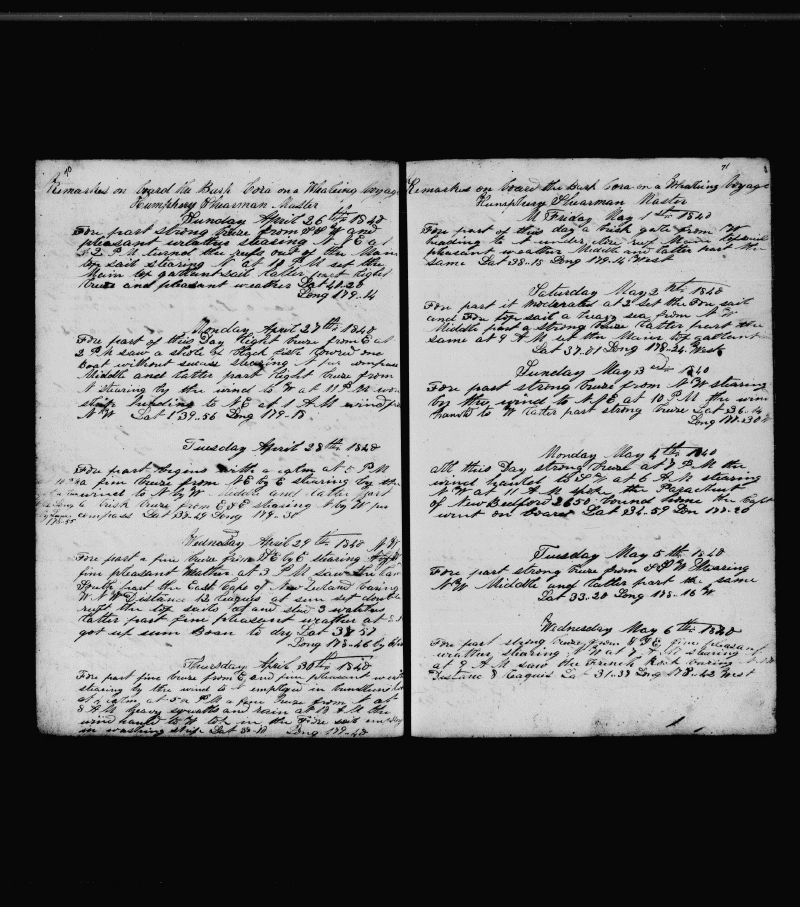 Remarks on board the Bark Cora on a Whaleing Voyage
Humphrey Shearman Master
Sunday April 26th 1840
Fore part strong breze from and
pleasant weather stearing N E at
2 P M turned the reefs out of the Main
top sail stearing at 10 A M set the
Main top gallant sail latter part light
breze and pleasant weather Lat 41.20
Long 179.14
Monday April 27th 1840
Fore part of this Day light breze from E at
2 P M saw a shole of Black fish lowred one
Boat without suces stearing N per compass
Middle and latter part light breze from
N stearing by the wind to W at 11 P M
ship heading to N E at 1 A M wind
N W Lat 39.56 Long 179.18
Tuesday April 28th 1840
Fore part begins with a calm at 5 P M
a fine breze from N E by E stearing by the
wind to N by W Middle and latter part
a brisk breze from E S E stearing N by W per
compass Lat 38.29 Long 179.31
Wednesday April 29th 1840
Fore part a fine breze from S E by E stearing
fine pleasant weather at 3 P M saw the
South part the East Cape of New Zeland baring
W N W Distance 12 leagues at sun set double
reeft the top sails at and sted 3 watches
latter part fine pleasant weather at
got up sum Bean to dry Lat 37 57
Long 178.46 by
Thursday April 30th 1840
Fore part fine breze from E and fine pleasant
stearing by the wind to N employed in
at a calm at 5 P M a fine breze from at
8 A M heavy squalls and rain at 10 A M the
wind hauld to W tok in the Fore sail
in washing ship Lat Long 179.48
71
Remarks on board the Bark Cora on a Whaleing Voyage
Humphrey Shearman Master
Friday May 1st 1840
Fore part of this day a brisk gale from W
heading to N under close reef Main topsail
pleasant weather Middle and latter part the
same Lat 38.15 Long 179.14 West
Saturday May 2nd 1840
Fore part it moderated at 2 set the Fore sail
and Fore top sail a heavy sea from N W
Middle part a strong breze latter part the
same at 9 A M set the Main top gallant
Lat 37.01 Long 178.24 West
Sunday May 3rd 1840
Fore part strong breze from N W stearing
by the wind to N N E at 10 P M the wind
hauld to W latter part strong breze Lat 36.14
Long
Monday May 4th 1840
All this Day strong breze at 7 P M the
wind hauled to S W at 6 A M stearing
N W at 11 A M spok the Parachute
of New Bedford 2650 bound home the Capt
went on board Lat 34.59 Lon 177.20
Tuesday May 5th 1840
Fore part strong breze from S S W Stearing
N W Middle and latter part the same
Lat 33.20 Long 178.16 W
Wednesday May 6th 1840
Fore part strong breze from S S E fine pleasant
weather stearing N W at 7 A M stearing
at 9 A M saw the French Rock baring
Distance 8 leagues Lat 31.37 Long 178.42 West